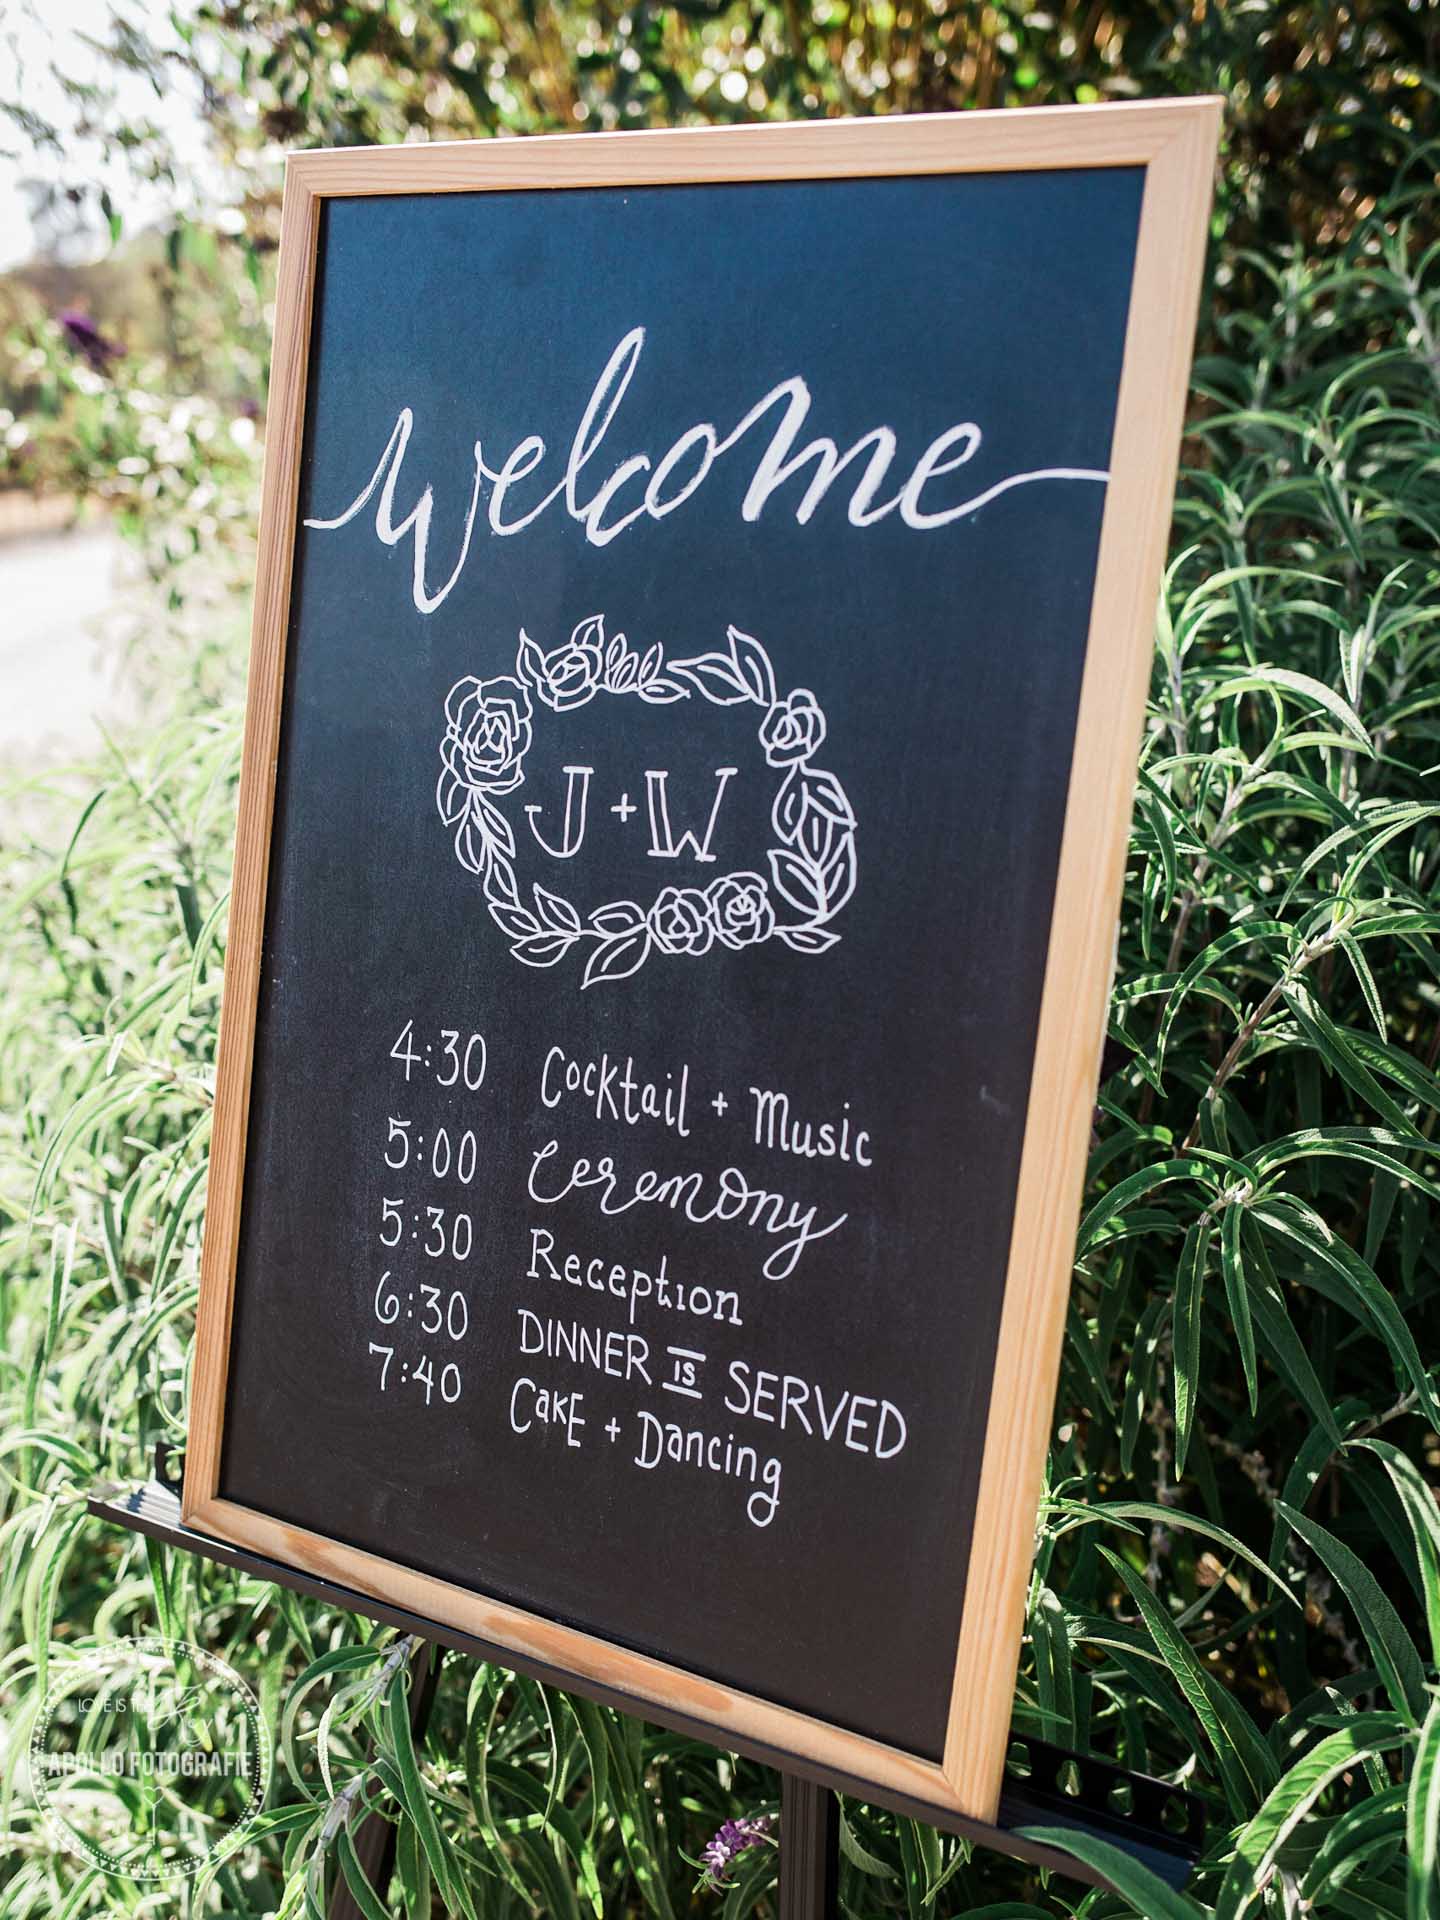 welcome
J + W
4:30 Cocktail + Music
5:00 Ceremony
5:30 Reception
6:30 DINNER IS SERVED
7:40 CakE + Dancing
LOVE IS THE
APOLLO FOTOGRAFIE